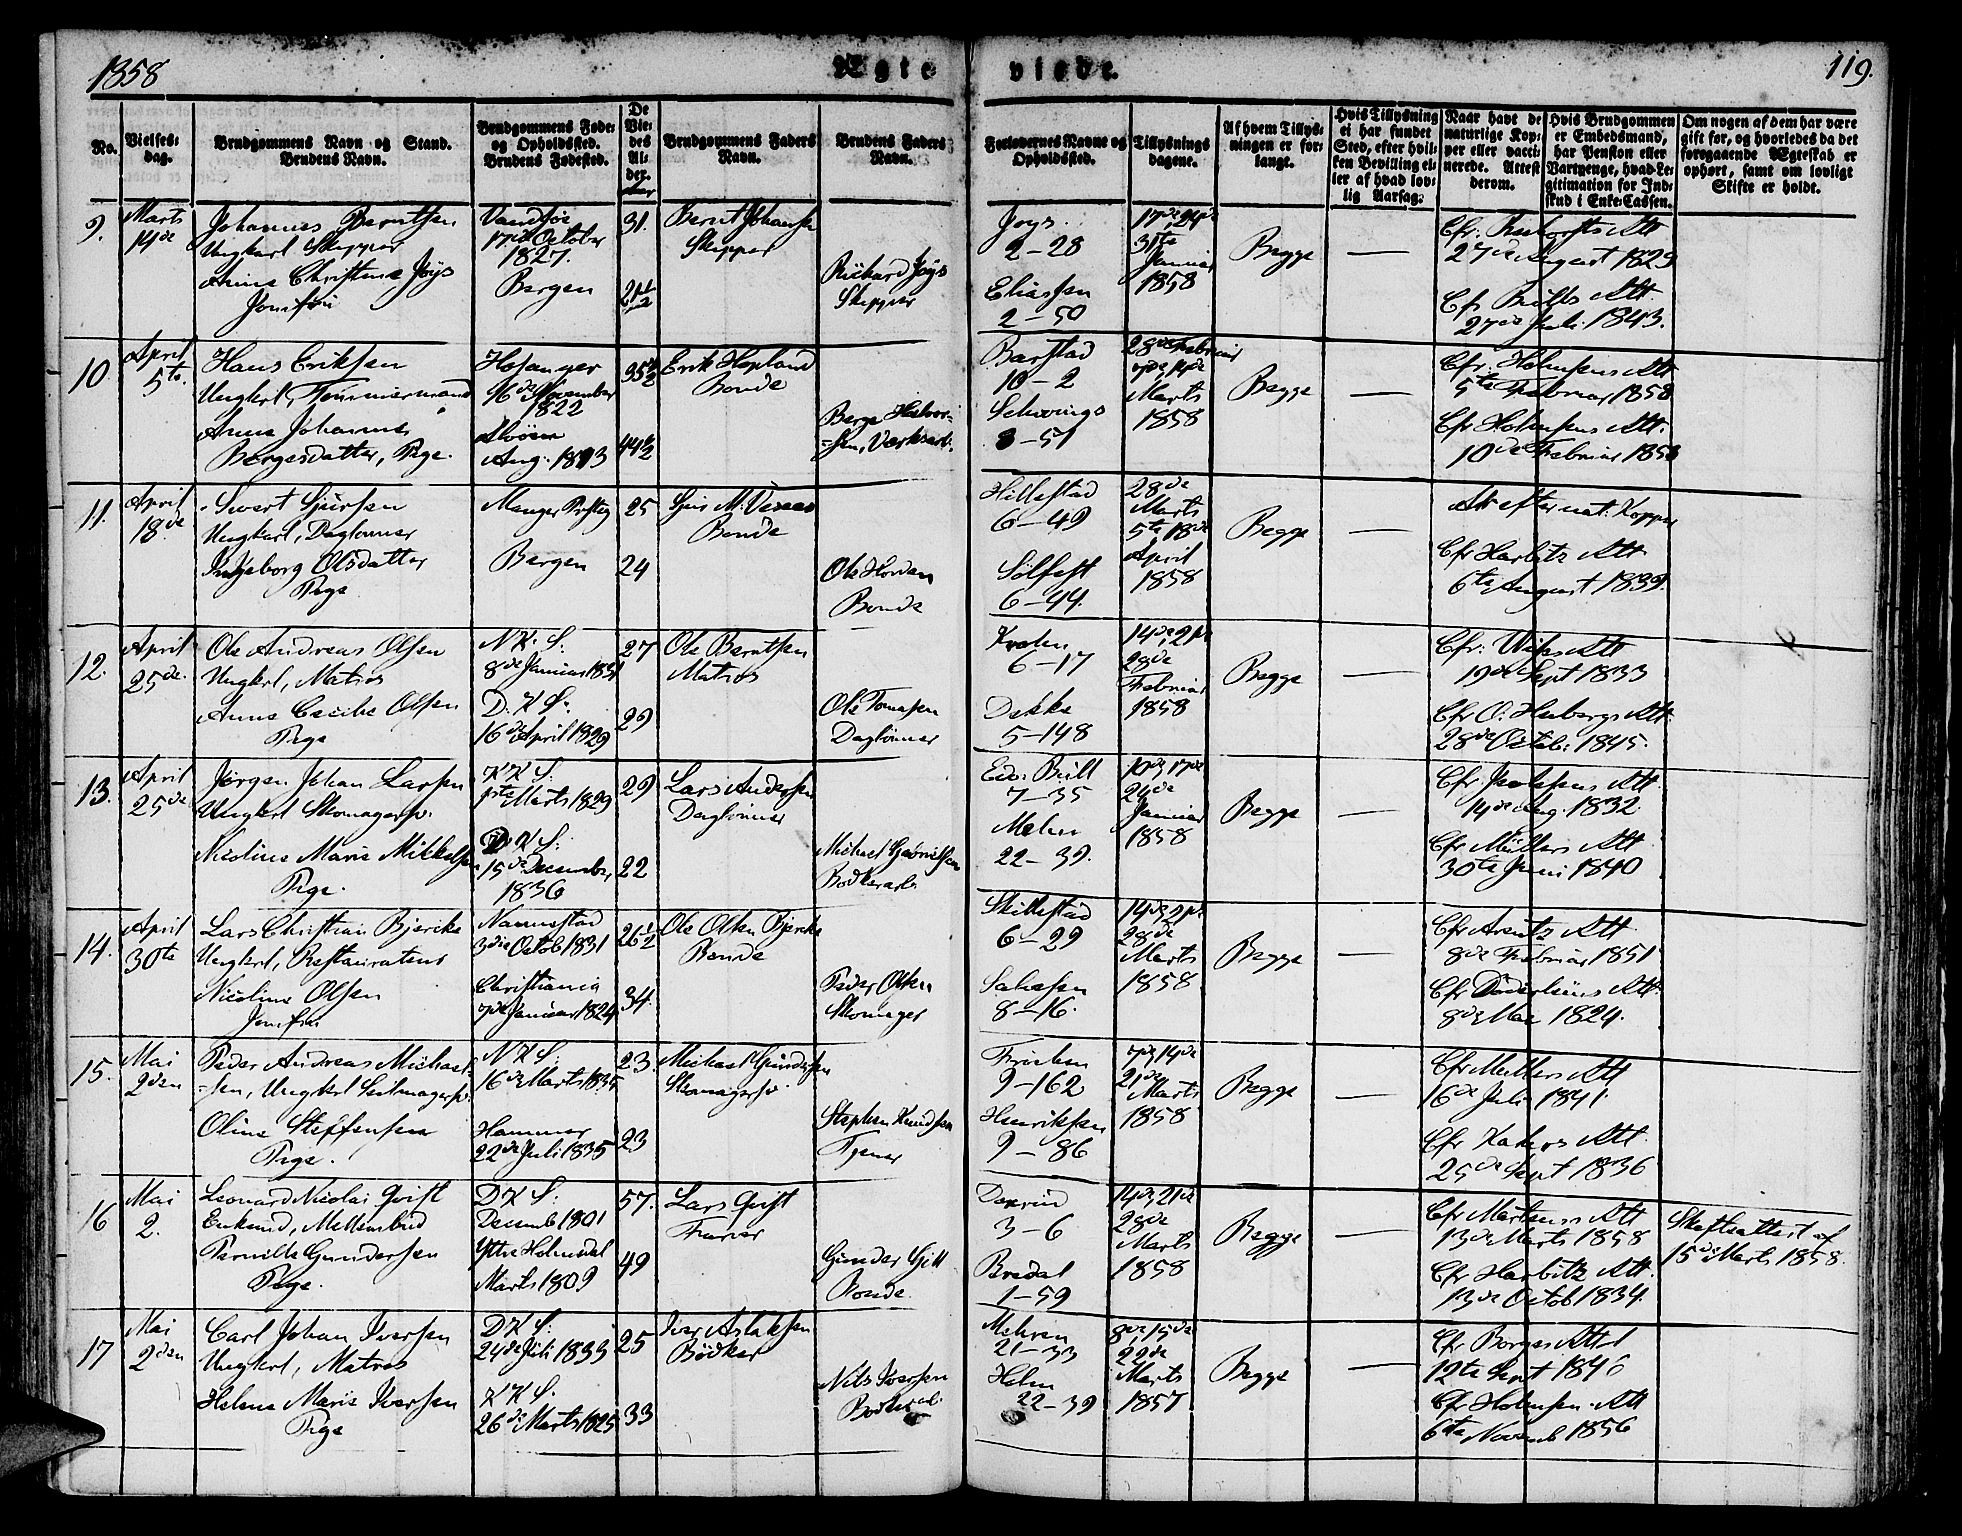 1858
Ægte
viede.
119.
No.
Vielses-
dag.
Brudgommens Navn og Stand.
Brudens Navn.
Brudgommens Føde-
og Opholdssted.
Brudens Fødested.
De
Vie-
des
Al-
der.
Brudgommens Faders
Navn.
Brudens Faders
Navn.
Forlovernes Navne og
Opholdssted.
Tillysnings
dagene.
Af hvem Tillys-
ningen er for-
langt.
Hvis Tillysning
ei har fundet
Sted, efter hvil-
ken Bevilling el-
ler af hvad lov-
lig Aarsag.
Naar havt de
naturlige Kop-
per eller vacci-
nerede. Attest
derom.
Hvis Brudgommen
er Embedsmand,
har Pension eller
Vartpenge, hvad Le-
gitimation for Ind-
skud i Enke-Cassen.
Om nogen af dem har være
gift før, og hvorledes da det
foregaaende Ægteskab er
ophørt, samt om lovligt
Skifte er holdt.
9.
Marts
14de
Johannes Berntsen
Ungkarl Skipper
Anna Christina Joys
Jomfru
17de October
1827.
Bergen
31.
21 1/2
Bernt Johansen
Skipper
Richard Joys
Skipper
Joys.
2-28
Eliassen
2-50
17de, 24de
31te
Januar
1858
Begge
—
27de August 1829
Cfr. Bulls Att.
27de Juli 1843.
10
April
5te.
Hans Eriksen
Ungkrl, Tømmermand
Anna Johannes
Bergesdatter, Pige.
Hosanger
16de November
1822
Alvøen
Aug. 1813
35 1/2
44 1/2
Erik Hopland
Bonde
Berge Halvor-
=sen, Værksarb.
Barstad
10-2
8-51
28de Februar
7de, 14de
Marts
1858
Begge
—
Cfr. Holmsens Att
5te Februar 1858
Cfr Holmsens Att.
10de Februar 1858
11.
April
18de
Sivert Sjursen
Ungkarl, Daglønner
Ingeborg Olsdatter
Pige
Manger Prstg
Bergen
25
24
Bonde
Ole Hordan
Bonde
Hillestad
6-49
Solfest
6-44.
28de
Marts
5te 18de
April
1858
Begge
—
Ar efter nat: Kopper
Cfr Harbitz Att
6te August 1839.
12.
April
25de.
Ole Andreas Olsen
Ungkrl, Matros
Anne Cecilie Olsen
Pige
N. K: S:
8de Januar 1831
D. K S:
16de April 1829
27
29
Ole Berntsen
Matros
Ole Tomasen
Daglønner
6-17
Dekke
5-148
14de, 21de
28de
Februar
1858
Begge
—
19de Sept 1833
28de Octob: 1845.
13.
April
25de
Jørgen Johan Larsen
Ungkarl Skomagersv.
Nicoline Marie Mikkelsen
Pige.
K K S:
1ste Marts 1829
D: K S:
15de December
1836
29
22
Lars Andersen
Daglønner
Michael Gabrielsen
Bødkerarb
Edv. Bull
7-35
Mehn
22-39.
10de, 17de
24de
Januar
1858
Begge
—
14de Aug. 1832.
Cfr Müllers Att
30te Juni 1840
14.
April
30te
Lars Christian Bjerike
Ungkrl, Restauratens
Nicoline Olsen
Jomfru
Nannestad
3die Octob 1831
Christiania
7de Januar 1824
26 1/2
34.
Ole Olsen Bjerike
Bonde
Peder Olsen
Skomager
Skillestad
6-29
8-16.
14de, 21de
28de
Marts
1858
Begge
—
Cfr Arentz Att.
8de Februar 1851.
8de Mai 1824.
15.
Mai
2den
Peder Andreas Michael-
=sen, Ungkrl Seilmagersv.
Oline Steffensen
Pige.
N K S:
16de Marts 1835
Hammer
22de Juli 1835
23.
23
Michael Gundersen
Skomagersv.
Stephen Knudsen
Tjener
9-162
Henriksen
9-86
7de, 14de
21de
Marts
1858
Begge
—
Cfr Müllers Att
16de Juli 1841.
25de Sept 1836
16
Mai
2.
Leonard Nicolai Qvist
Enkmd, Mellembud
Pernille Gundersen
Pige.
D K S:
Decemb 1801
Yttre Holmedal
Marts 1809
57.
49
Lars Qvist
Farver
Bonde.
3-6
Bredal
1-59
14de, 21de
28de
Marts
1858
Begge
—
Cfr Martens Att
13de Marts 1858
Cfr Harbitz Att.
13de Octob 1834.
Skifteattest af
15de Marts 1858.
17
Mai
2den
Carl Johan Iversen
Ungkrl, Matros
Helene Marie Iversen
Pige
D K S:
24de Juli 1833
K K S.
26de Marts 1825
25
33
Iver Aslaksen
Bødker
Nils Iversen
Bødker
Mehren
21-33
Helm
22-39
8de, 15de
22de
Marts
1857
Begge
—
12te Sept 1846
Cfr Holmsen. Att
6te Novemb 1856